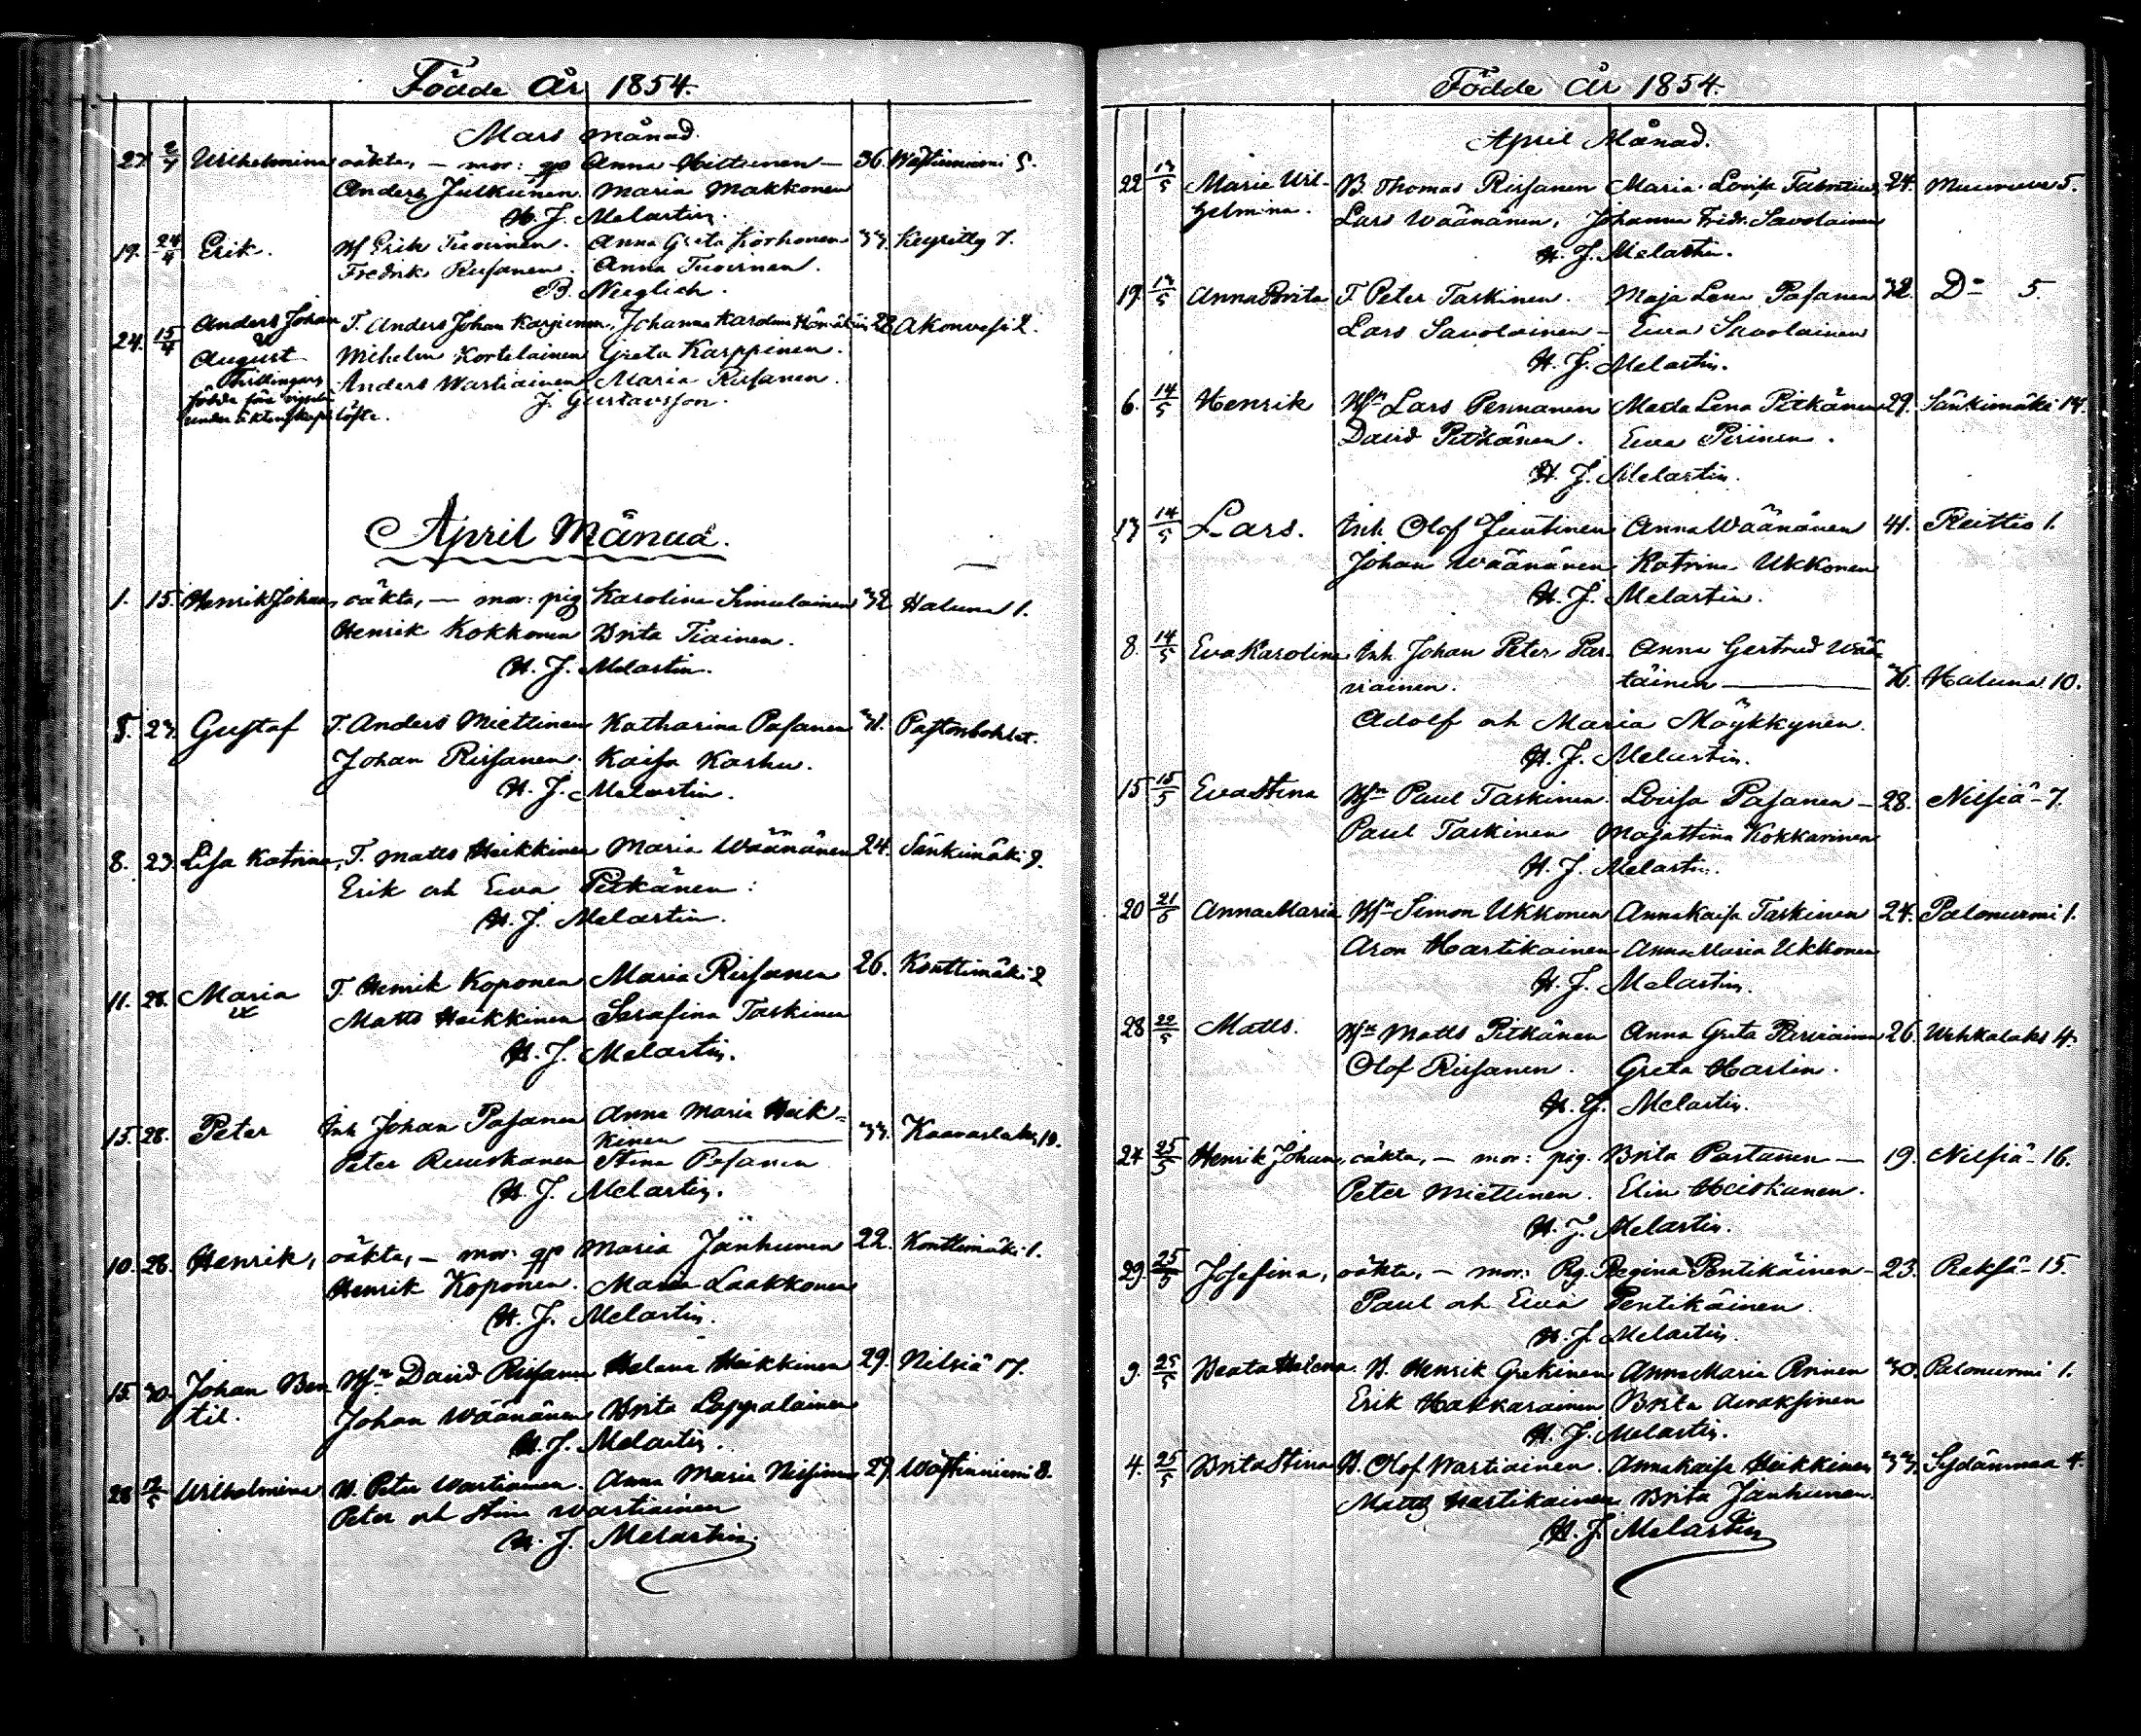 Födde År 1854.
Mars månad.
27. 2/4 Wilhelmina oäkta, – mor: gp Anna Hiltunen – 36. Wästinniemi 5.
Anders Julkunen. Maria Makkonen
H. J. Melartin.
19. 24/4 Erik. Erik Tuovinen. Anna Greta Korhonen 33. Keyritty 7.
Fredrik Rissanen. Anna Tuovinen.
B. Neiglick.
24. 15/4 Anders Johan T. Anders Johan Karjunen, Johanna Karolina 28 Akonvesi 2.
& August Wilhelm Kortelainen Greta Karppinen.
Tvillingar Anders Wartiainen Maria Rissanen.
födde före vigseln J. Gustavsson.
under äktenskapslöfte.
April Månad.
1. 15. Henrik Johan, oäkta, – mor: pig Karolina Simulainen 32 Haluna 1.
Henrik Kokkonen Brita Tiainen.
H. J. Melartin.
8. 23. Gustaf T. Anders Miettinen Katharina Pasanen 31. Pastorsbohlet.
Johan Rissanen. Kaisa Karhu.
H. J. Melartin.
8. 23. Lisa Katrina, T. Matts Heikkinen Maria Wäänänen 24. Sänkimäki 9.
Erik och Ewa Pitkänen.
H. J. Melartin.
11. 28. Maria T. Henrik Koponen Maria Rissanen 26. Konttimäki 2
Matts Heikkinen Serafina Taskinen
H. J. Melartin.
15. 28. Peter Inh Johan Pasanen Anna Maria Heik-
kinen — 33. Kaavaslaks 10.
Peter Ruuskanen Stina Pasanen
H. J. Melartin.
10. 28. Henrik, oäkta, – mor: gp Maria Jänhunen 22. Konttimäki 1.
Henrik Koponen. Maria Laakkonen
H. J. Melartin.
15. 30. Johan Ber- Bn David Rissanen Helena Heikkinen 29. Nilsiä 17.
til. Johan Wäänänen Brita Lappalainen
H. J. Melartin.
28 12/5 Wilhelmina B. Peter Wartiainen. Anna Maria Nissinen 27. Wästinniemi 8.
Peter och Stina Wartiainen
H. J. Melartin.
Födde År 1854.
April Månad.
22 13/5 Maria Wil- B. Thomas Rissanen Maria Lovisa Fabritius 24. Muuruvesi 5.
helmina. Lars Wäänänen, Johanna Fredr. Savolainen
H. J. Melartin.
19. 13/5 Anna Brita T. Peter Taskinen. Maja Lena Pasanen 32. Do 5.
Lars Savolainen – Ewa Savolainen
H. J. Melartin.
6. 14/5 Henrik Bn Lars Pennanen Marta Lena Pitkänen 29. Sänkimäki 14.
David Pitkänen. Ewa Pirinen.
H. J. Melartin.
13 14/5 Lars. Inh. Olof Juutinen Anna Wäänänen 41. Reittio 1.
Johan Wäänänen Katrina Ukkonen
H. J. Melartin.
8. 14/5 Eva Karolina Inh. Johan Peter Par- Anna Gertrud Wää-
viainen. täinen — 36. Haluna 10.
Adolf och Maria Möykkynen.
H. J. Melartin.
15 15/5 Eva Stina Bn Paul Taskinen. Lovisa Pasanen – 28. Nilsiä – 7.
Paul Taskinen Maja Stina Kokkarinen
H. J. Melartin.
20 21/5 Anna Maria Bn Simon Ukkonen Anna Kaisa Taskinen 24. Palonurmi 1.
Aron Hartikainen Anna Maria Ukkonen
H. J. Melartin.
28 22/5 Matts. Bn Matts Pitkänen Anna Greta Parviainen 26. Wehkalaks 4.
Olof Rissanen. Greta Harlin.
H. J. Melartin.
24 25/5 Henrik Johan, oäkta, – mor: pig. Brita Partanen – 19. Nilsiä – 16.
Peter Miettinen. Elin Heiskanen.
H. J. Melartin.
29. 25/5 Josefina, oäkta, – mor: Pg. Regina Pentikäinen – 23. Reksä – 15.
Paul och Ewa Pentikäinen.
H. J. Melartin.
9. 25/5 Beata Helena. B. Henrik Grekinen Anna Maria Rinen 30. Palonurmi 1.
Erik Hakkarainen Brita
H. J. Melartin.
4. 25/5 Brita Stina B. Olof Wartiainen. Anna Kaisa Heikkinen 33. Sydänmaa 4.
Matts Hartikainen Brita Jänhunen.
H. J. Melartin